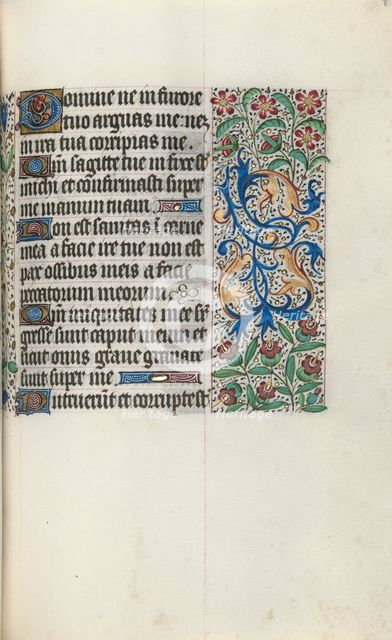 Domine ne in furore
tuo arguas me nez
in ira tua corripias me.
Qm̄ sagitte tue infixe st̄
michi et confirmasti super
me manum tuam.
Non est sanitas ī carne
mea a facie ire tue non est
pax ossibus meis a facie
peccatorum meorum
Qm̄ iniquitates mee su
gresse sunt caput meum et
sicut onus graue grauate
sunt super me
Putruerūt et corrupte st̄
Heritage
Heritage